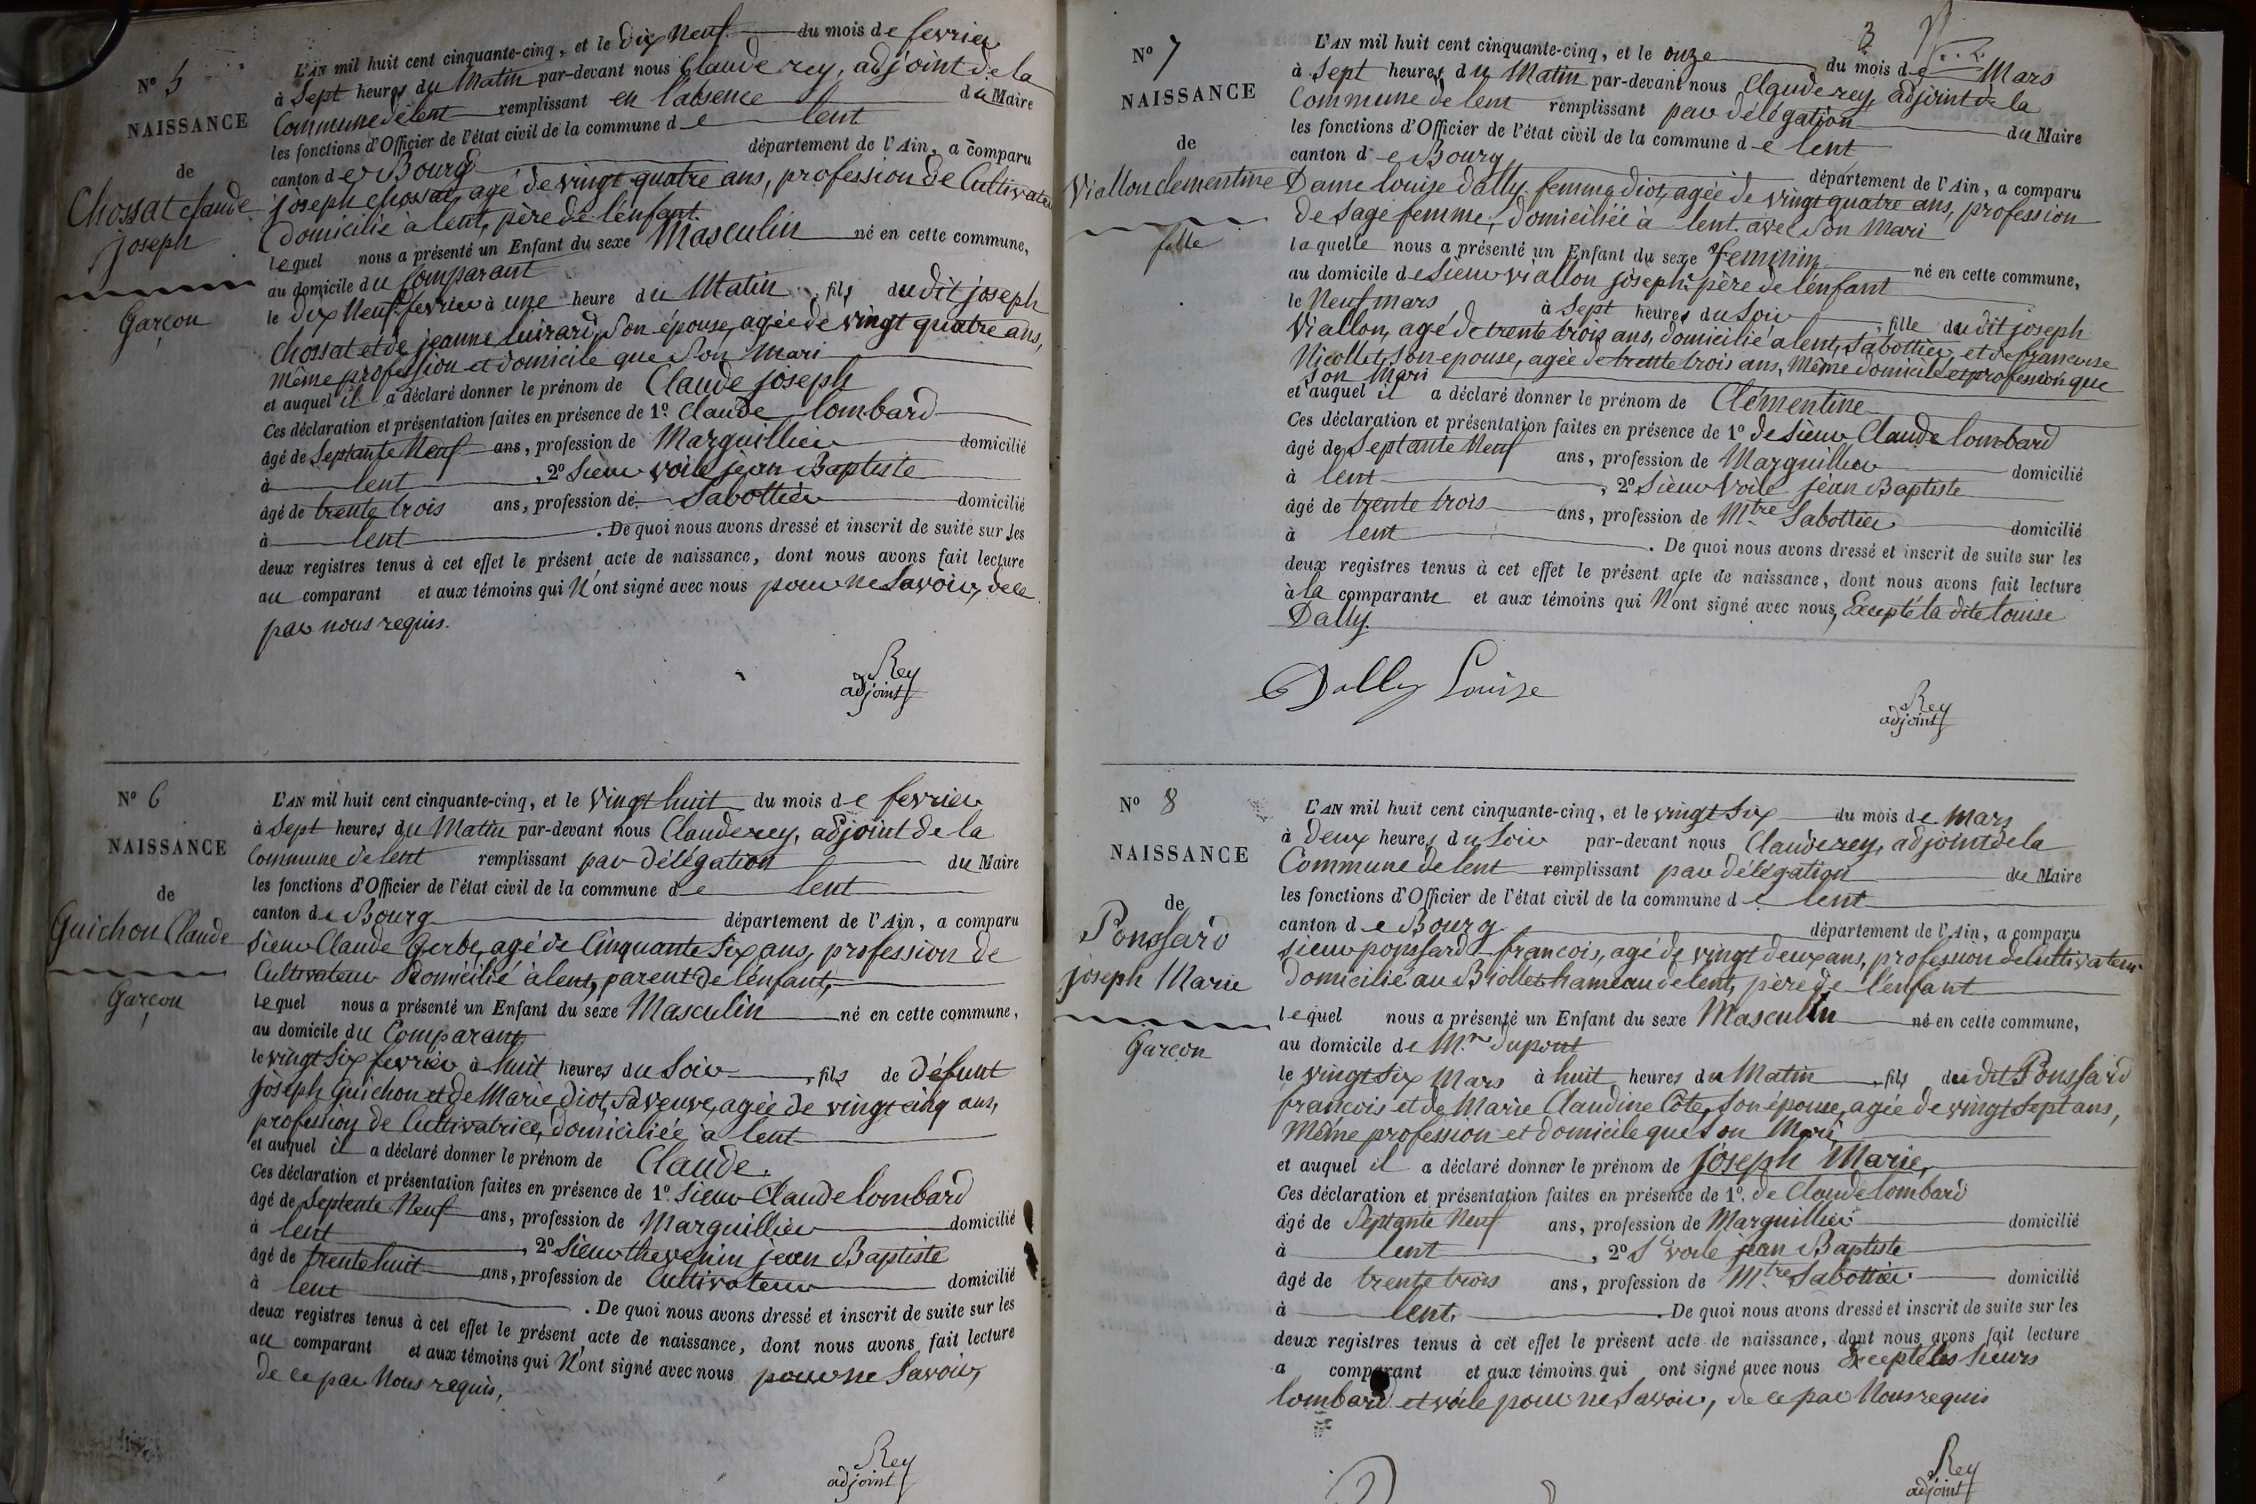 N° 5
NAISSANCE
de
Chossat claude
joseph
Garçon
L'AN mil huit cent cinquante-cinq, et le dix Neuf du mois de fevrier
à Sept heures du Matin par-devant nous Claude rey, adjoint de la
Commune de lent remplissant en l'absence du Maire
les fonctions d'Officier de l'état civil de la commune de lent
canton de Bourg département de l'Ain, a comparu
joseph chossat, agé de vingt quatre ans, profession de Cultivateur
domicilié a lent, père de l'enfant.
lequel nous a présenté un Enfant du sexe Masculin né en cette commune,
au domicile du Comparant
le dix Neuf fevrier à une heure du Matin, fils du dit joseph
Chossat et de jeanne luirard, Son épouse, agée de vingt quatre ans,
même profession et domicile que Son Mari
et auquel il a déclaré donner le prénom de Claude joseph
Ces déclaration et présentation faites en présence de 1° Claude lombard
âgé de Septante Neuf ans, profession de Marguillier domicilié
à lent, 2° Sieur voile jean Baptiste
âgé de trente trois ans, profession de Sabottier domicilié
à lent. De quoi nous avons dressé et inscrit de suite sur les
deux registres tenus à cet effet le présent acte de naissance, dont nous avons fait lecture
au comparant et aux témoins qui N'ont signé avec nous pour ne Savoir, de ce
par nous requis.
Rey
adjoint
N° 6
NAISSANCE
de
Guichon Claude
Garçon
L'AN mil huit cent cinquante-cinq, et le vingt huit du mois de fevrier
à Sept heures du Matin par-devant nous Claude rey, adjoint de la
Commune de lent remplissant par délégation du Maire
les fonctions d'Officier de l'état civil de la commune de lent
canton de Bourg département de l'Ain, a comparu
Sieur Claude Gerbe, agé de Cinquante Six ans, profession de
Cultivateur Domicilié à lent, parent de l'enfant,
lequel nous a présenté un Enfant du sexe Masculin né en cette commune,
au domicile du Comparant
le vingt Six fevrier à huit heures du Soir, fils de défunt
joseph Guichon et de Marie diot, Sa veuve, agée de vingt cinq ans,
profession de Cultivatrice, domiciliée à lent
et auquel il a déclaré donner le prénom de Claude.
Ces déclaration et présentation faites en présence de 1° Sieur Claude lombard
âgé de Septente Neuf ans, profession de Marguillier domicilié
à lent, 2° Sieur thevenin jean Baptiste
âgé de trente huit ans, profession de Cultivateur domicilié
à lent. De quoi nous avons dressé et inscrit de suite sur les
deux registres tenus à cet effet le présent acte de naissance, dont nous avons fait lecture
au comparant et aux témoins qui N'ont signé avec nous pour ne Savoir,
de ce par Nous requis,
Rey
adjoint
3
N° 7
NAISSANCE
de
Viallon clementine
fille
L'AN mil huit cent cinquante-cinq, et le onze du mois de Mars
à Sept heures du Matin par-devant nous Claude rey, adjoint de la
Commune de lent remplissant par délégation du Maire
les fonctions d'Officier de l'état civil de la commune de lent
canton de Bourg département de l'Ain, a comparu
Dame louise dally, femme diot, agée de vingt quatre ans, profession
de Sage femme, domiciliée à lent avec Son Mari
laquelle nous a présenté un Enfant du sexe feminin né en cette commune,
au domicile de Sieur viallon joseph, père de l'enfant
le Neuf mars à Sept heures du Soir, fille du dit joseph
Viallon, agé de trente trois ans, domicilié a lent, Sabottier, et de francoise
Nicollet, Son epouse, agée de trente trois ans, Même domicile et profession que
Son Mari
et auquel il a déclaré donner le prénom de Clémentine
Ces déclaration et présentation faites en présence de 1° de Sieur Claude lombard
âgé de Septante Neuf ans, profession de Marguillier domicilié
à lent, 2° Sieur Voile jean Baptiste
âgé de trente trois ans, profession de Mtre Sabottier domicilié
à lent. De quoi nous avons dressé et inscrit de suite sur les
deux registres tenus à cet effet le présent acte de naissance, dont nous avons fait lecture
à la comparante et aux témoins qui N'ont signé avec nous, Excepté la dite louise
Dally.
Dally Louise
Rey
adjoint
N° 8
NAISSANCE
de
Ponssard
joseph Marie
Garçon
L'AN mil huit cent cinquante-cinq, et le vingt Six du mois de Mars
à deux heures du Soir par-devant nous Claude rey, adjoint de la
Commune de lent remplissant par délégation du Maire
les fonctions d'Officier de l'état civil de la commune de lent
canton de Bourg département de l'Ain, a comparu
Sieur ponssard francois, agé de vingt deux ans, profession de Cultivateur
domicilié au Biollet hameau de lent, père de l'enfant
lequel nous a présenté un Enfant du sexe Masculin né en cette commune,
au domicile de Mr dupont
le vingt Six Mars à huit heures du Matin, fils du dit Ponssard
francois et de Marie Claudine Cote, Son épouse, agée de vingt Sept ans,
Même profession et domicile que Son Mari
et auquel il a déclaré donner le prénom de joseph Marie,
Ces déclaration et présentation faites en présence de 1° de Claude lombard
âgé de Septante Neuf ans, profession de Marguillier domicilié
à lent, 2° Sr voile jean Baptiste
âgé de trente trois ans, profession de Mtre Sabottier domicilié
à lent. De quoi nous avons dressé et inscrit de suite sur les
deux registres tenus à cet effet le présent acte de naissance, dont nous avons fait lecture
a comparant et aux témoins qui ont signé avec nous Excepté les Sieurs
lombard et voile pour ne Savoir, de ce par Nous requis
Rey
adjoint